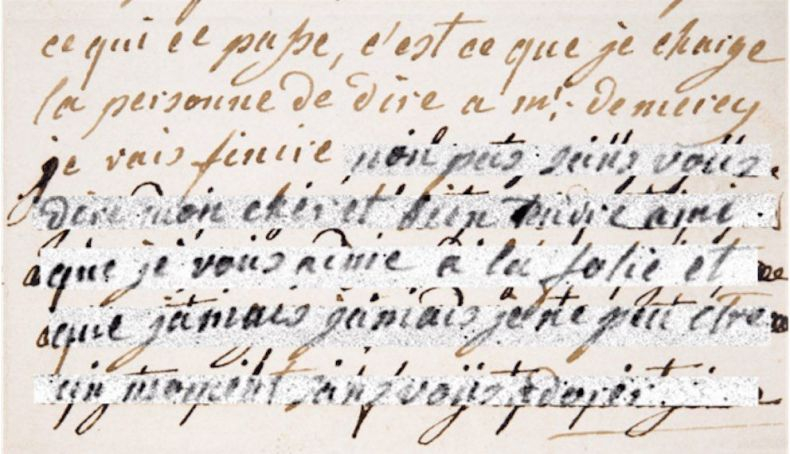 ce qui ce passe, c'est ce que je charge
la personne de dire a mr. de mercy
je vais finire non pas sans vous
dire mon cher et bien tendre ami
que je vous aime a la folie et
que jamais jamais je ne peu être
un moment sans vous adorer